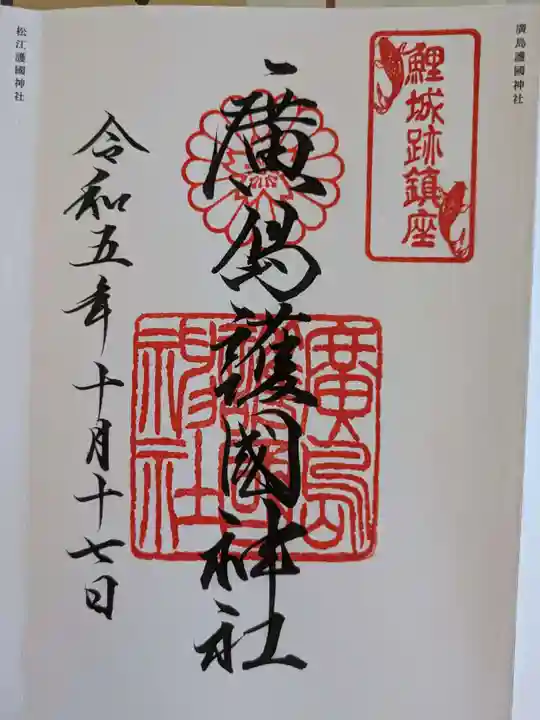 廣島護國神社
鯉城跡鎮座
廣島護國神社
廣島護國神社
令和五年十月十七日
松江護國神社